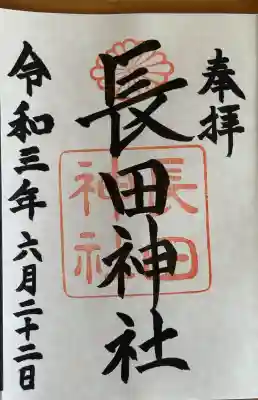 奉拝
長田神社
長田
神社
令和三年六月二十二日